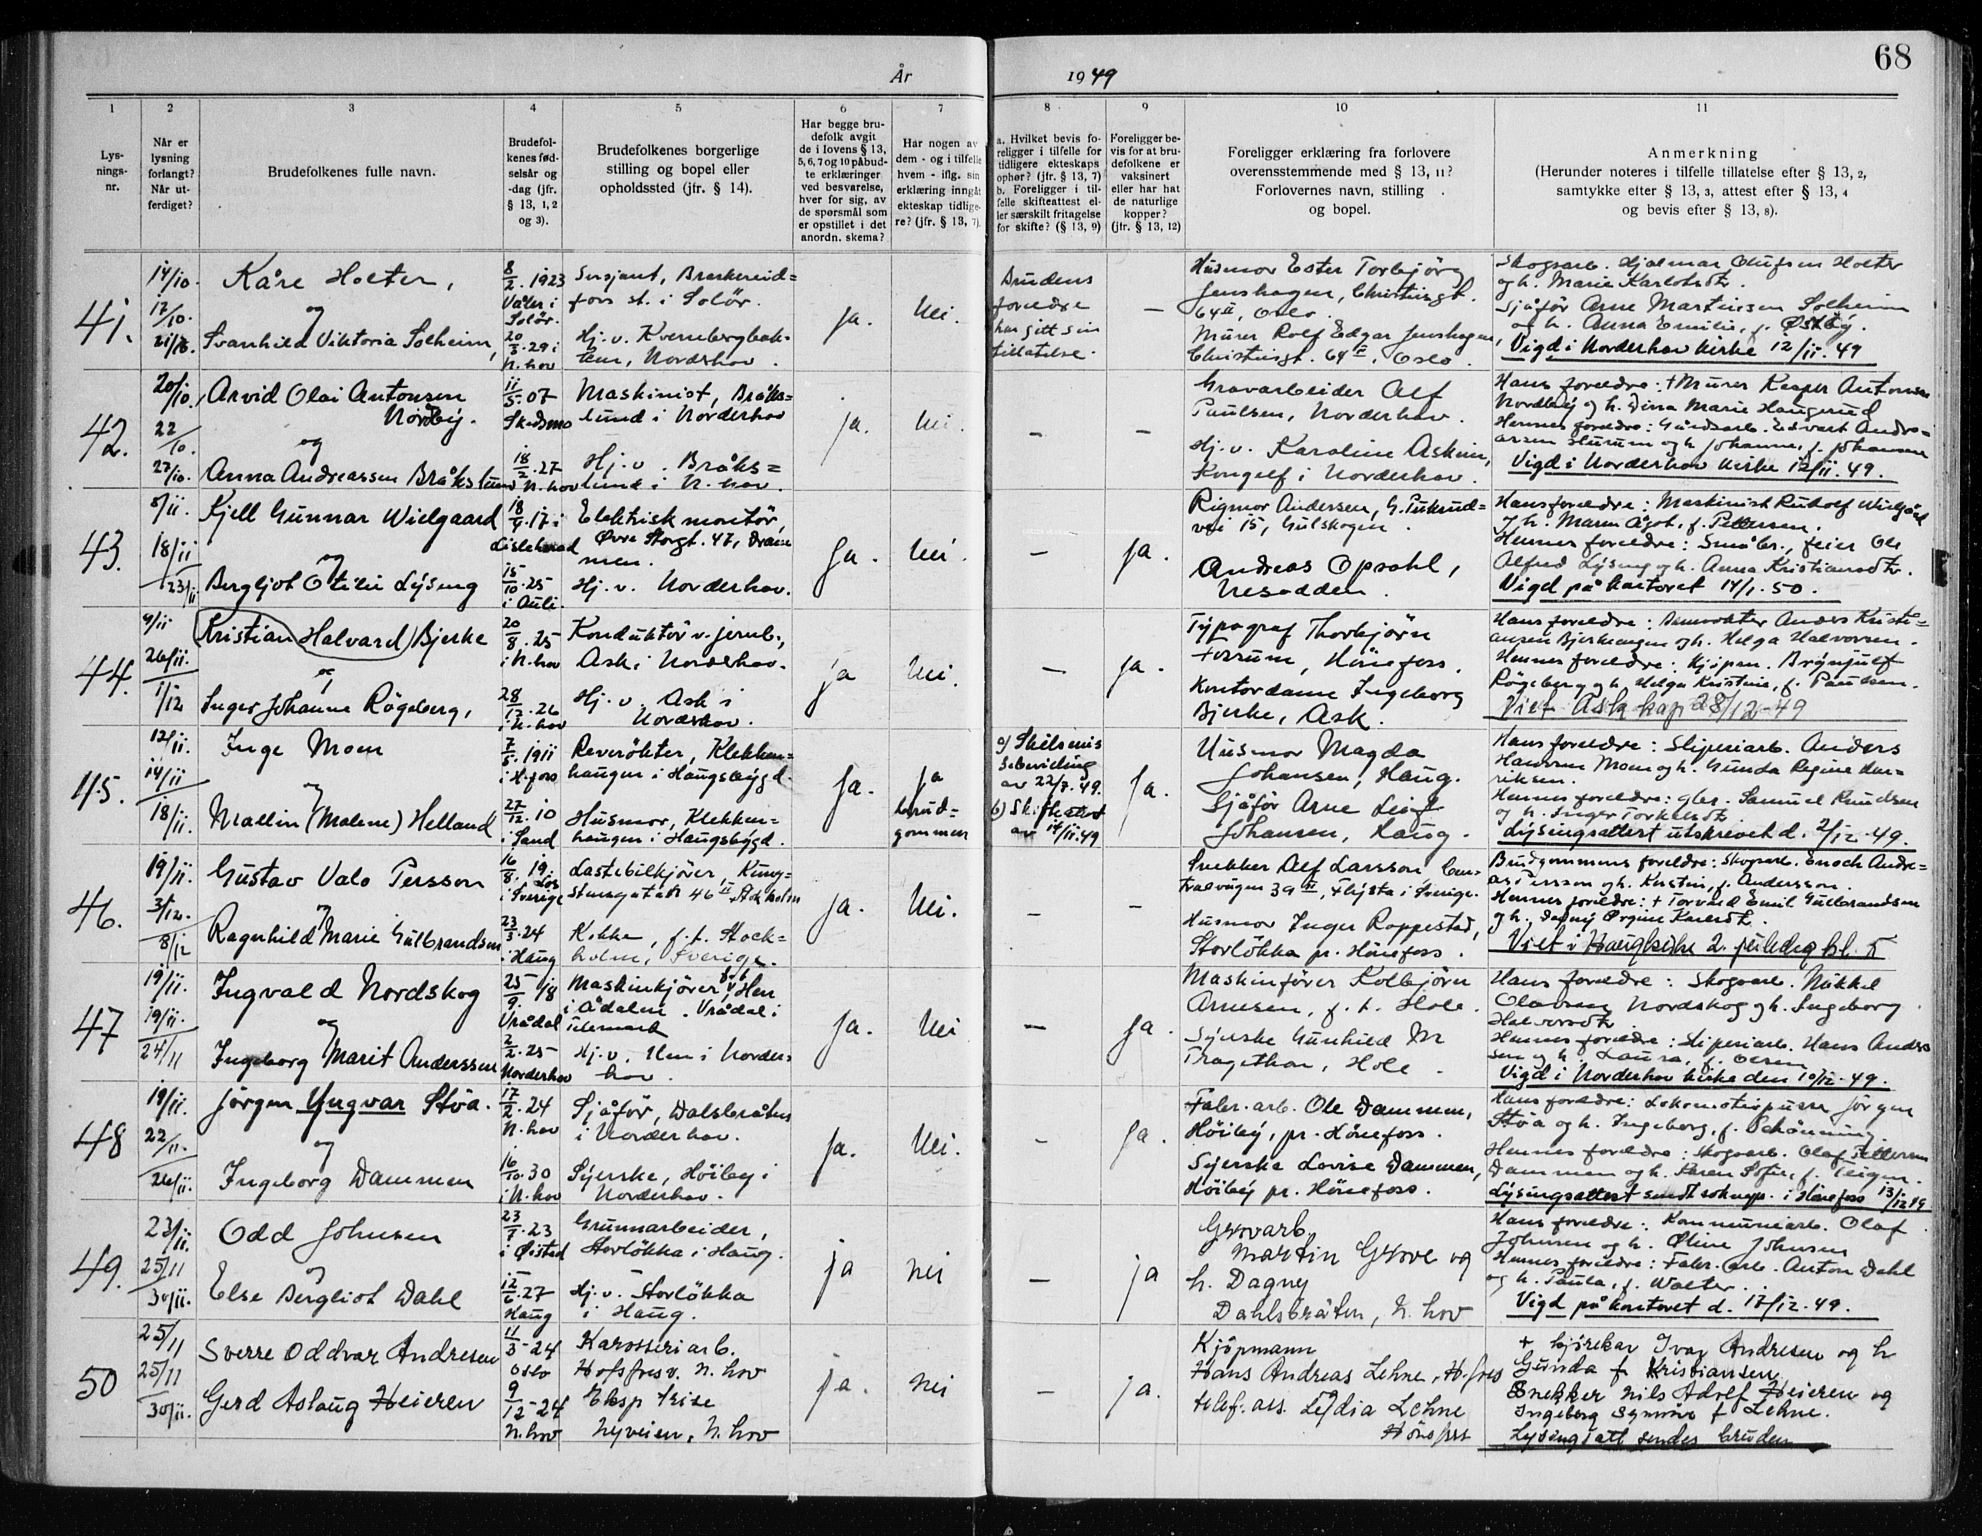 68
År 1949
1 2 3 4 5 6 7 8 9 10 11
Lysningsnr.
Når er lysning forlangt? Når utferdiget?
Brudefolkenes fulle navn.
Brudefolkenes fødselsår og -dag (jfr. § 13, 1, 2 og 3).
Brudefolkenes borgerlige stilling og bopel eller opholdssted (jfr. § 14).
Har begge brudefolk avgit de i lovens § 13, 5, 6, 7 og 10 påbudte erklæringer ved besvarelse, hver for sig, av de spørsmål som er opstillet i det anordn. skema?
Har nogen av dem - og i tilfelle hvem - iflg. sin erklæring inngått ekteskap tidligere? (jfr. § 13, 7).
a. Hvilket bevis foreligger i tilfelle for tidligere ekteskaps ophør? (jfr. § 13, 7)
b. Foreligger i tilfelle skifteattest eller særskilt fritagelse for skifte? (§ 13, 9)
Foreligger bevis for at brudefolkene er vaksinert eller har hat de naturlige kopper? (jfr. § 13, 12)
Foreligger erklæring fra forlovere overensstemmende med § 13, 11? Forlovernes navn, stilling og bopel.
Anmerkning
(Herunder noteres i tilfelle tillatelse efter § 13, 2, samtykke efter § 13, 3, attest efter § 13, 4 og bevis efter § 13, 8).
41.
14/10.
17/10.
21/10.
Kåre Holter,
og
Svanhild Viktoria Solheim,
8/2. 1923
Våler i
Solør.
20/3. 29 i
N. hov
Sersjant, Braskereid=
foss st. i Solør.
Hj. v. Kvernbergbak-
ken, Norderhov.
Ja.
Nei.
Brudens
foreldre
har gitt sin
tillatelse.
-
Husmor Ester Torbjørg
Jenshagen, Christiesgt.
64 II, Oslo.
Murer Rolf Edgar Jenshagen,
Christiesgt. 64 II, Oslo.
Skogsarb. Hjalmar Olufsen Holter
og h. Marie Karlotsdtr
Sjåfør Arne Martinsen Solheim
og h. Anna Emilie, f. Østby.
Vigd i Norderhov kirke 12/11. 49
42.
20/10.
22/10.
27/10.
Arvid Olai Antonsen
Nordby.
og
Anna Andreassen Bråkslund
11/5. 07
Skedsmo
18/2. 27
N. hov
Maskinist, Bråks=
lund i Norderhov
Hj. v. Bråks=
lund i N. hov.
Ja.
Nei.
-
-
Gravarbeider Alf
Paulsen, Norderhov.
Hj. v. Karoline Askim,
Kongelf i Norderhov.
Hans foreldre: + Murer Kasper Antonsen
Nordby og h. Dina Marie Haugerud
Hennes foreldre: Gårdsarb. Edvart Andre=
assen Hurum og h. Johanne, f. Johansen
Vigd i Norderhov kirke 12/11. 49.
43.
5/11.
18/11
23/11
Kjell Gunnar Wielgaard
og
Bergljot Otilie Lyseng
18/9. 17 i
15/10. 25
i Auli.
Elektrisk montør,
Øvre Storgt. 47, Dram
men.
Hj. v. Norderhov.
Ja.
Nei.
-
Ja.
Rigmor Andersen, G.
vei 15, Gulskogen.
Andreas Opsahl,
Nesodden.
Hans foreldre: Maskinist Rudolf Wielgård
og h. Maren Ågot, f. Pettersen.
Hennes foreldre: Småbr., feier Ole
Alfred Lyseng og h. Anna Kristiansdtr.
Vigd på kontoret 14/1. 50.
44.
9/11
26/11.
1/12
Kristian (Halvard) Bjerke
og
Inger Johanne Røgeberg,
20/8. 25
i N. hov
28/12. 26
i N. hov
Konduktør v. jernb.,
Ask i Norderhov.
Hj. v. Ask i
Norderhov.
Ja
Nei.
-
Ja.
Typograf Thorbjørn
Fossum, Hønefoss.
Kontordame Ingeborg
Bjerke, Ask.
Hans foreldre: Anders Kristi=
ansen Bjerkeengen og h. Helga Halvorsen.
Hennes foreldre: Kjøpm. Brynjulf
Røgeberg og h. Helga Kristine, f. Paulsen.
Viet Ask kap 28/12-49
45.
12/11.
14/11
18/11.
Inge Moen
og
Mallin (Malene) Helland
7/5. 1911
i H. foss
27/12. 10
i Sand
Reverøkter, Klekken=
haugen i Haugsbygd.
Husmor, Klekken=
haugen i Haugsbygd.
Ja.
Ja
brud=
gommen
a) Skilsmis
sebevilling
av 22/7. 49.
b) Skifteatest
av 14/11. 49
Ja.
Husmor Magda
Johansen, Haug.
Sjåfør Arne Leif
Johansen, Haug.
Hans foreldre: Sliperiarb. Anders
Hansen Moen og h. Gunda Regine Hen=
riksen.
Hennes foreldre: gbr. Samuel Knudsen
og h. Inger Torkelsdtr.
Lysingsattest utskrevet d. 2/12. 49.
46.
19/11.
3/12.
8/12
Gustav Valo Persson
og
Ragnhild Marie Gulbrandsen
16/8. 19.
Los
i Sverige
23/3. 24
i Haug
Lastebilkjører, Kung=
stensgatan 46 II Stockholm
Kokke, f. t. Stock=
holm, Sverige.
Ja.
Nei.
-
-
Snekker Alf Larsson Cen=
tralvägen 39 IV, i Sverige.
Husmor Inger Roppestad,
Storløkka pr. Hønefoss.
Brudgommens foreldre: Skogsarb. Enoch Andre=
as Persson og h. Kristin, f. Andersson.
Hennes foreldre: + Torvald Emil Gulbrandsen
og h. Dagny Ørgine Karlsdtr.
Viet i Haug kirke 2. juledag kl. 5
47
19/11.
19/11.
24/11
Ingvald Nordskog
og
Ingeborg Marit Anderssen
25/9. 18
Vrådal
2/2. 25
Norderhov
Maskinkjører, Hen
i Ådalen. Vrådal i
Telemark
Hj. v. Hen i Norder=
hov.
Ja.
Nei
-
Ja.
Maskinfører Kolbjørn
Arnesen, f. t. Hole.
Syerske Gunhild M
Tragethon, Hole.
Hans foreldre: Skogsarb. Mikkel
Olavsen Nordskog og h. Ingeborg
Halvorsdtr
Hennes foreldre: Sliperiarb. Hans Anders
sen og h. Laura, f. Olsen
Vigd i Norderhov kirke den 10/12. 49.
48
19/11.
22/11.
26/11.
Jørgen Yngvar Støa.
og
Ingeborg Dammen
17/2. 24
N. hov
16/10. 30
i N. hov
Sjåfør, Dalsbråten
i Norderhov.
Syerske, Høiby i
Norderhov.
Ja.
Nei.
-
Ja.
Fabr. arb. Ole Dammen,
Høiby, pr. Hønefoss.
Syerske Lovise Dammen,
Høiby pr. Hønefoss.
Hans foreldre: Lokomotivpusser Jørgen
Støa og h. Ingeborg, f. Schønning.
Hennes foreldre: Skogsarb. Olaf Pettersen
Dammen og h. Karen Sofie, f. Teigen.
Lysingsattest sendt soknepr. i Hønefoss 13/12 49
49.
23/11.
25/11
30/11.
Odd Johnsen
og
Else Bergliot Dahl
23/7. 23
i Øisted
12/6. 27
Haug
Grunnarbeider,
Storløkka i Haug.
Hj. v. Storløkka
i Haug.
ja
nei
-
ja
Grovarb.
Martin Grove og
h. Dagny
Dahlsbråten, N. hov
Hans foreldre: Kommunearb. Olaf
Johnsen og h. Oline Johnsen
Hennes foreldre: Fabr. arb. Anton Dahl
og h. Paula, f. Walter.
Vigd på kontoret d. 17/12. 49.
50
25/11
25/11
30/11.
Sverre Oddvar Andresen
Gerd Aslaug Heieren
11/3-24
Oslo
9/12-24
N. hov
Karosseriarb.
Hofsfossv. N. hov
Eksp trise
Nyveien, N. hov
ja.
nei
-
ja.
Kjøpmann
Hans Andreas Lehne, H. foss
telef. ass. Lydia Lehne
Hønefoss
+ kjørekar Ivar Andresen og h
Gunda f Kristiansen
Snekker Nils Adolf Heieren og
Ingeborg Synnøve f Lehne.
Lysingsatt sendes bruden